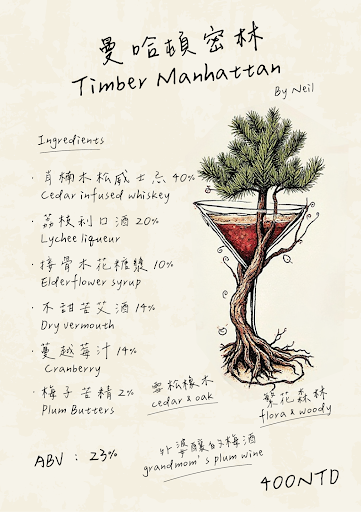 曼哈頓密林
Timber Manhattan
By Neil
Ingredients
· 肖楠木松威士忌 40%
Cedar infused whiskey
· 荔枝利口酒 20%
Lychee liqueur
· 接骨木花糖漿 10%
Elderflower syrup
· 不甜苦艾酒 14%
Dry vermouth
· 蔓越莓汁 14%
Cranberry
· 梅子苦精 2%
Plum Butters
雪松橡木
cedar & oak
繁花森林
flora & woody
外婆釀的梅酒
grandmom's plum wine
ABV : 23%
400NTD